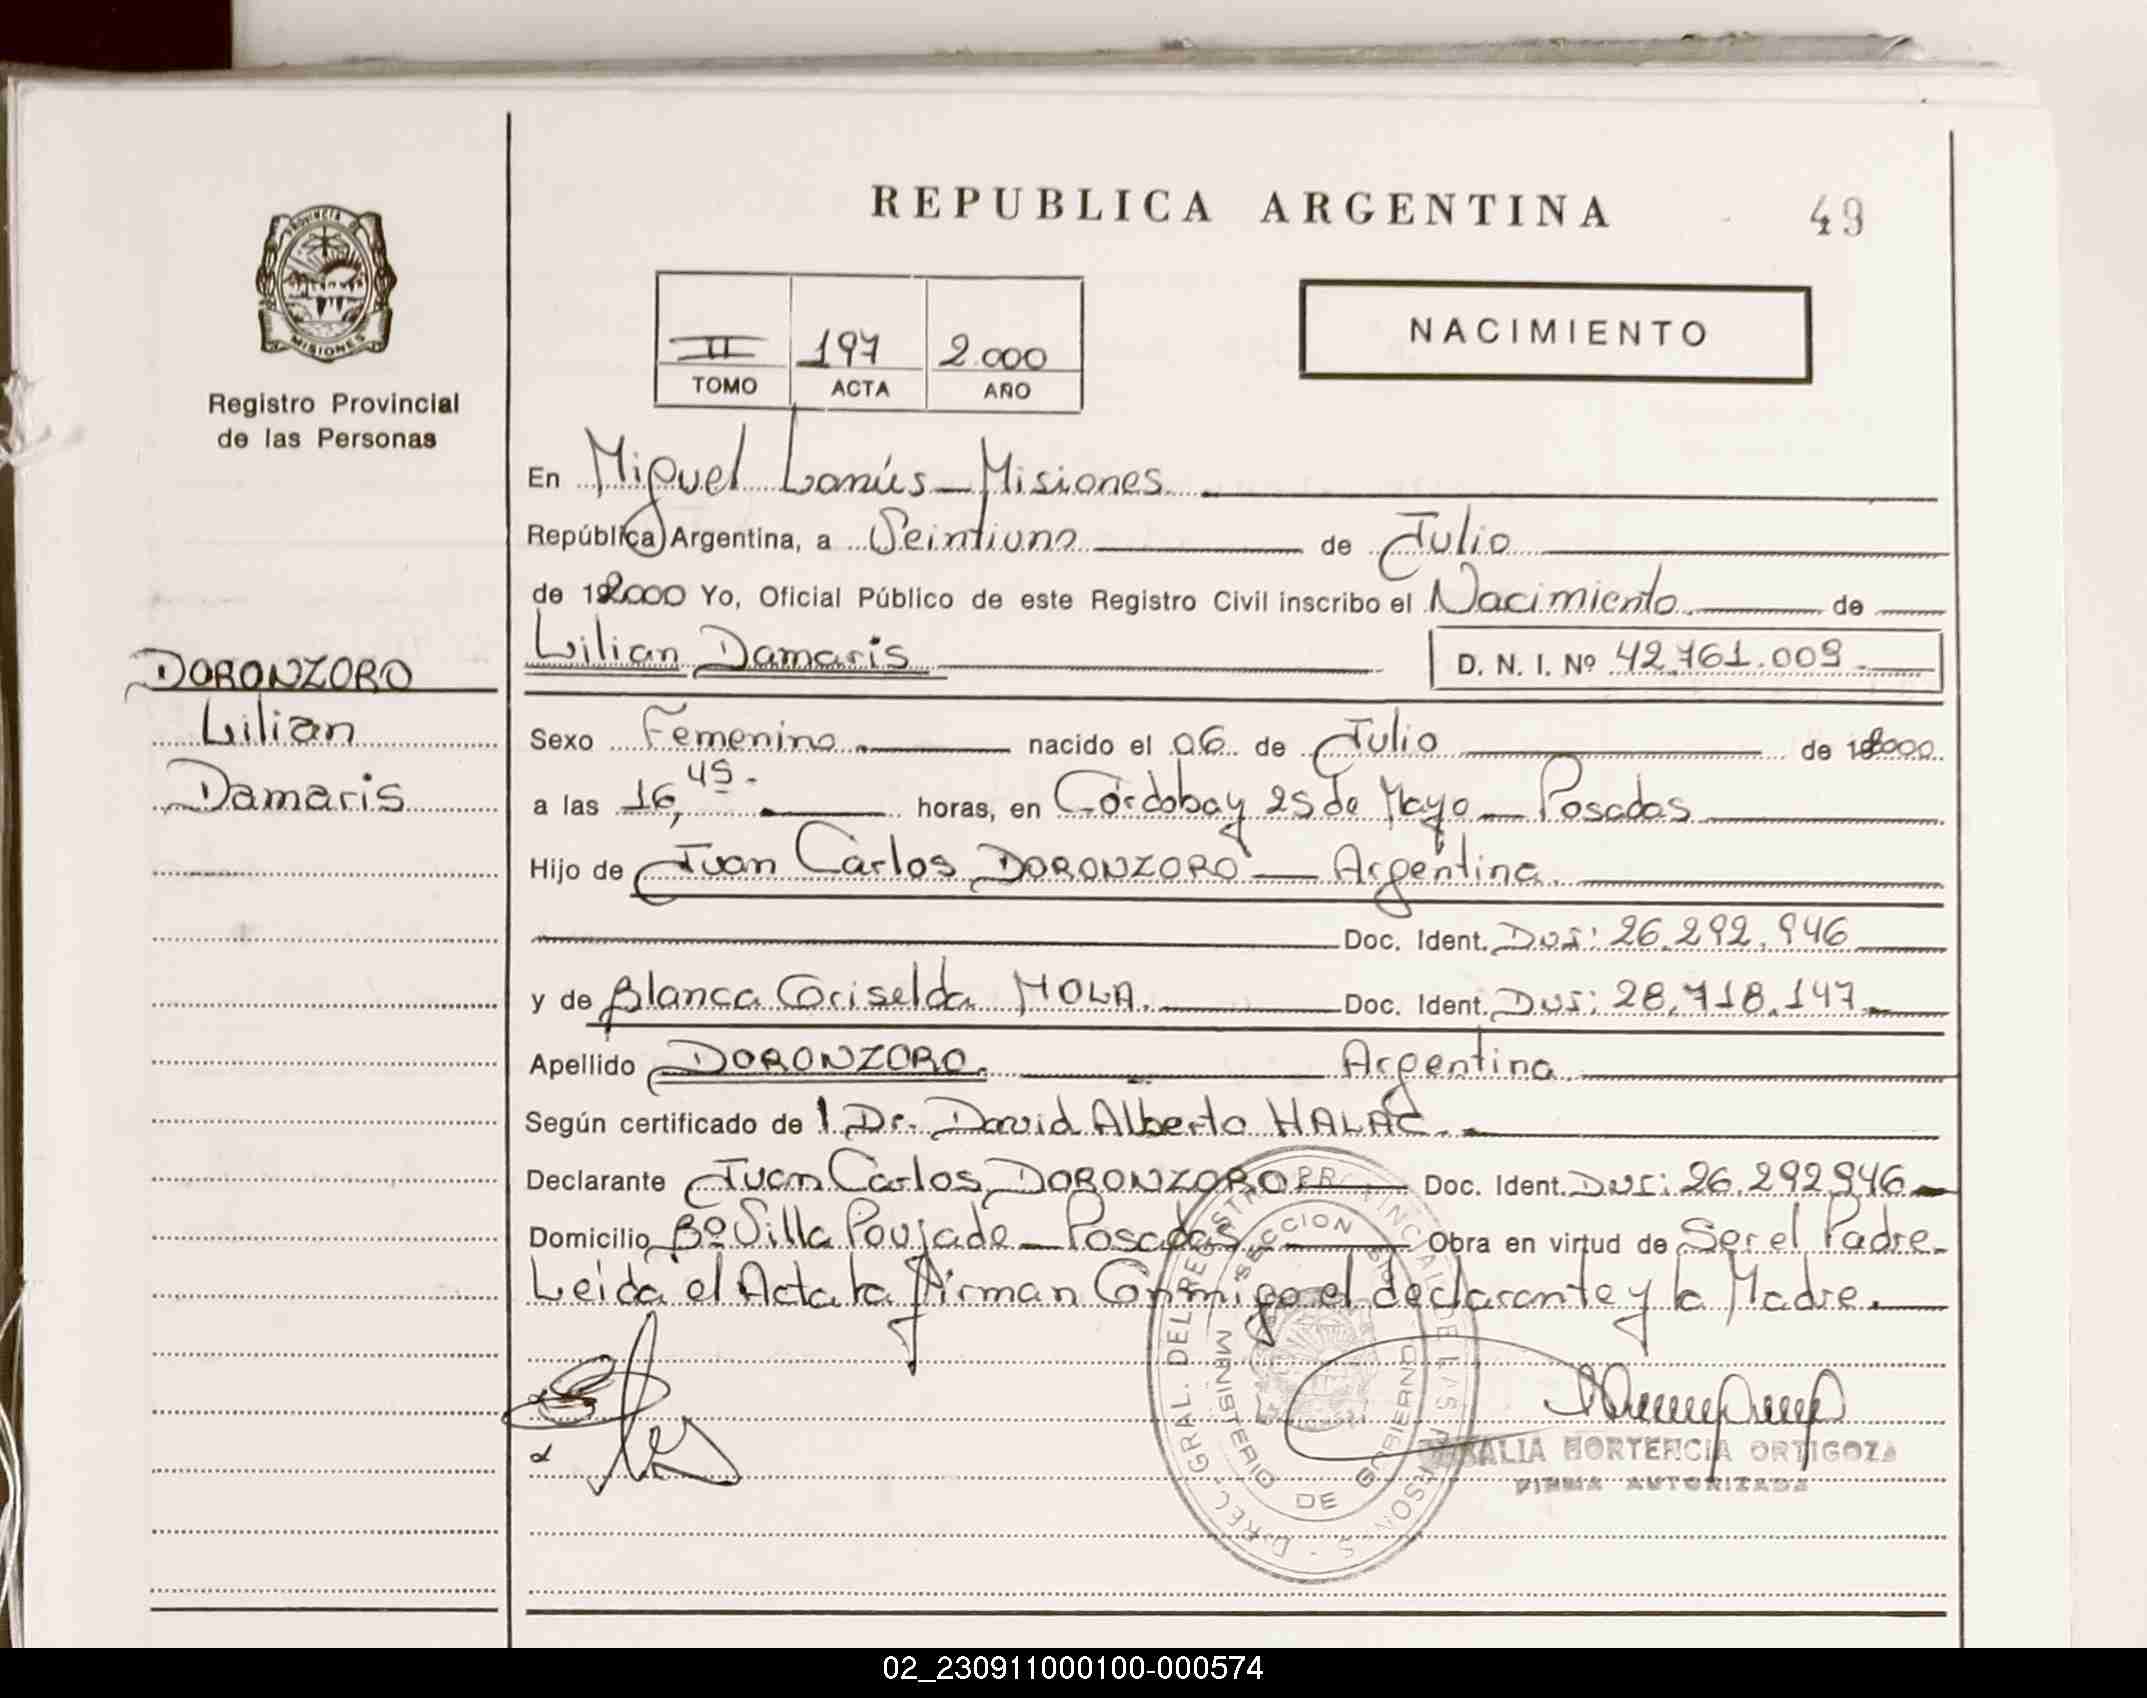 REPUBLICA ARGENTINA
49
PROVINCIA DE
MISIONES
Registro Provincial
de las Personas
II 197 2.000
TOMO ACTA AÑO
NACIMIENTO
En Miguel Lanús - Misiones
República Argentina, a Veintiuno de Julio
de 2000 Yo, Oficial Público de este Registro Civil inscribo el Nacimiento de
DORONZORO
Lilian
Damaris
Lilian Damaris
D. N. I. Nº 42.761.009.
Sexo Femenino nacido el 06 de Julio de 2000
a las 16,45. horas, en Córdoba y 25 de Mayo - Posadas
Hijo de Juan Carlos DORONZORO - Argentina.
Doc. Ident. DNI: 26.292.946
y de Blanca Griselda MOLA. Doc. Ident. DNI: 28.718.147.
Apellido DORONZORO. Argentina
Según certificado de l Dr. David Alberto HALAC.
Declarante Juan Carlos DORONZORO Doc. Ident. DNI: 26.292946
Domicilio Bº Villa Poujade - Posadas Obra en virtud de Ser el Padre.
Leida el Acta la firman Conmigo el declarante y la Madre.
SECCION
MINISTERIO DE GOBIERNO
HORTENCIA ORTIGOZA
FIRMA AUTORIZADA
02_230911000100-000574